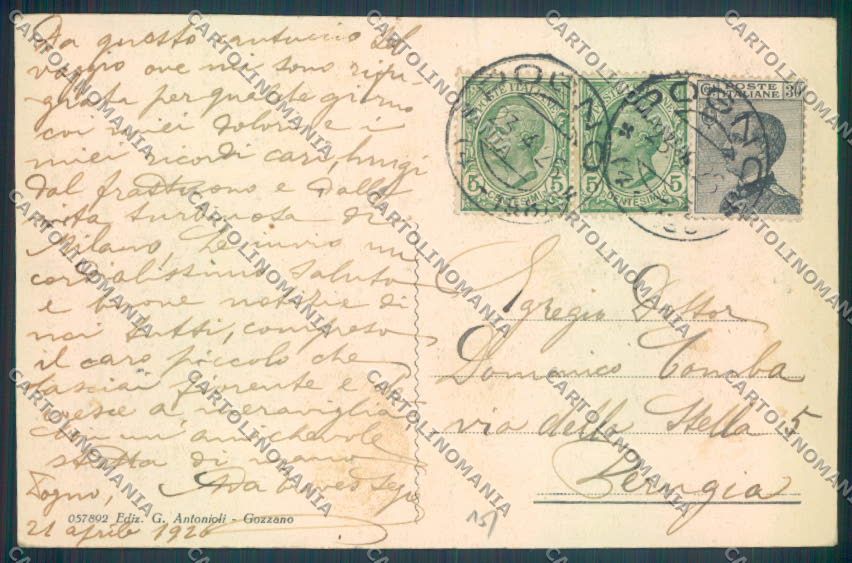 Da questo cantuccio del
vaggio ove mi sono rifu-
giata per qualche giorno
coi miei dolori e i
miei ricordi cari, lungi
dal frastuono e dalla
vita turbinosa di
Milano, Le invio un
cordialissimo saluto
e buone notizie di
noi tutti, compreso
il caro piccolo che
lasciai fiorente e
cresce a meraviglia
Con un' amichevole
stretta di mano
Ada
Sogno,
21 aprile 1926
057892 Ediz. G. Antonioli - Gozzano
POSTE ITALIANE
5 CENTESIMI 5
POSTE ITALIANE
5 CENTESIMI 5
POSTE 30
ITALIANE
Egregio Dottor
Domenico Tomba
via della Stella 5
Perugia
CARTOLINOMANIA